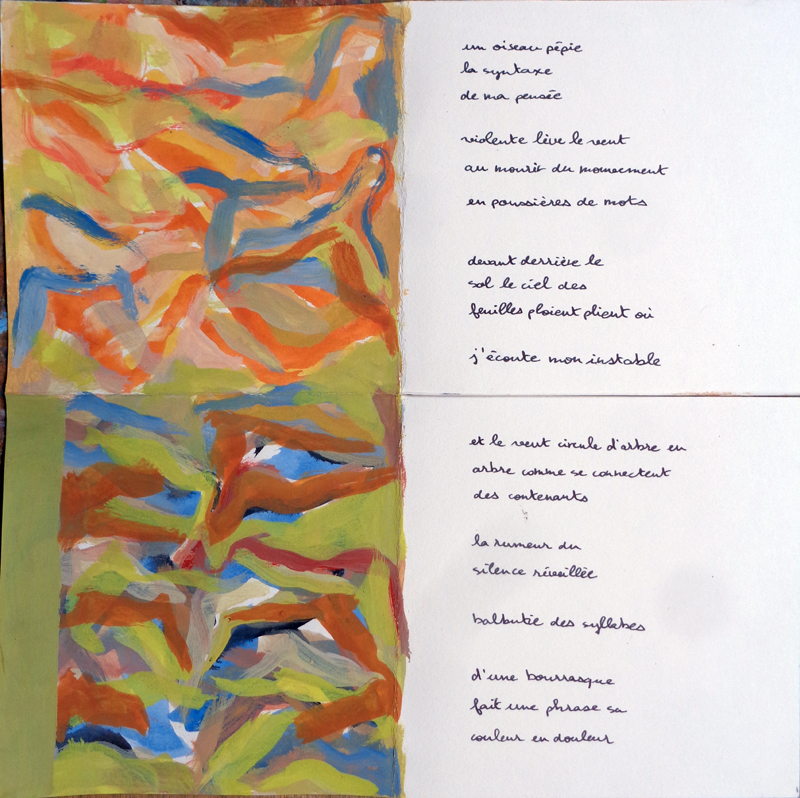 un oiseau pépie
la syntaxe
de ma pensée
violente lève le vent
au mourir du mouvement
en poussières de mots
devant derrière le
sol le ciel des
feuilles ploient plient où
j'écoute mon instable
et le vent circule d'arbre en
arbre comme se connectent
des contenants
la rumeur du
silence réveillée
balbutie des syllabes
d'une bourrasque
fait une phrase sa
couleur en douleur